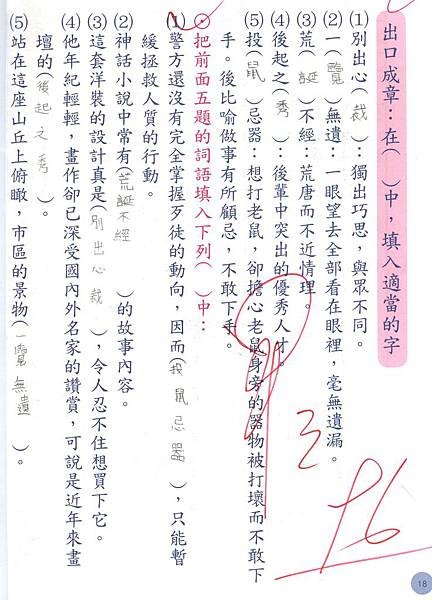 出口成章：在（　）中，填入適當的字
(1)別出心（裁）：獨出巧思，與眾不同。
(2)一（覽）無遺：一眼望去全部看在眼裡，毫無遺漏。
(3)荒（誕）不經：荒唐而不近情理。
(4)後起之（秀）：後輩中突出的優秀人才。
(5)投（鼠）忌器：想打老鼠，卻擔心老鼠身旁的器物被打壞而不敢下
手。後比喻做事有所顧忌，不敢下手。
把前面五題的詞語填入下列（　）中：
(1)警方還沒有完全掌握歹徒的動向，因而（投鼠忌器），只能暫
緩拯救人質的行動。
(2)神話小說中常有（荒誕不經）的故事內容。
(3)這套洋裝的設計真是（別出心裁），令人忍不住想買下它。
(4)他年紀輕輕，畫作卻已深受國內外名家的讚賞，可說是近年來畫
壇的（後起之秀）。
(5)站在這座山丘上俯瞰，市區的景物（一覽無遺）。
18